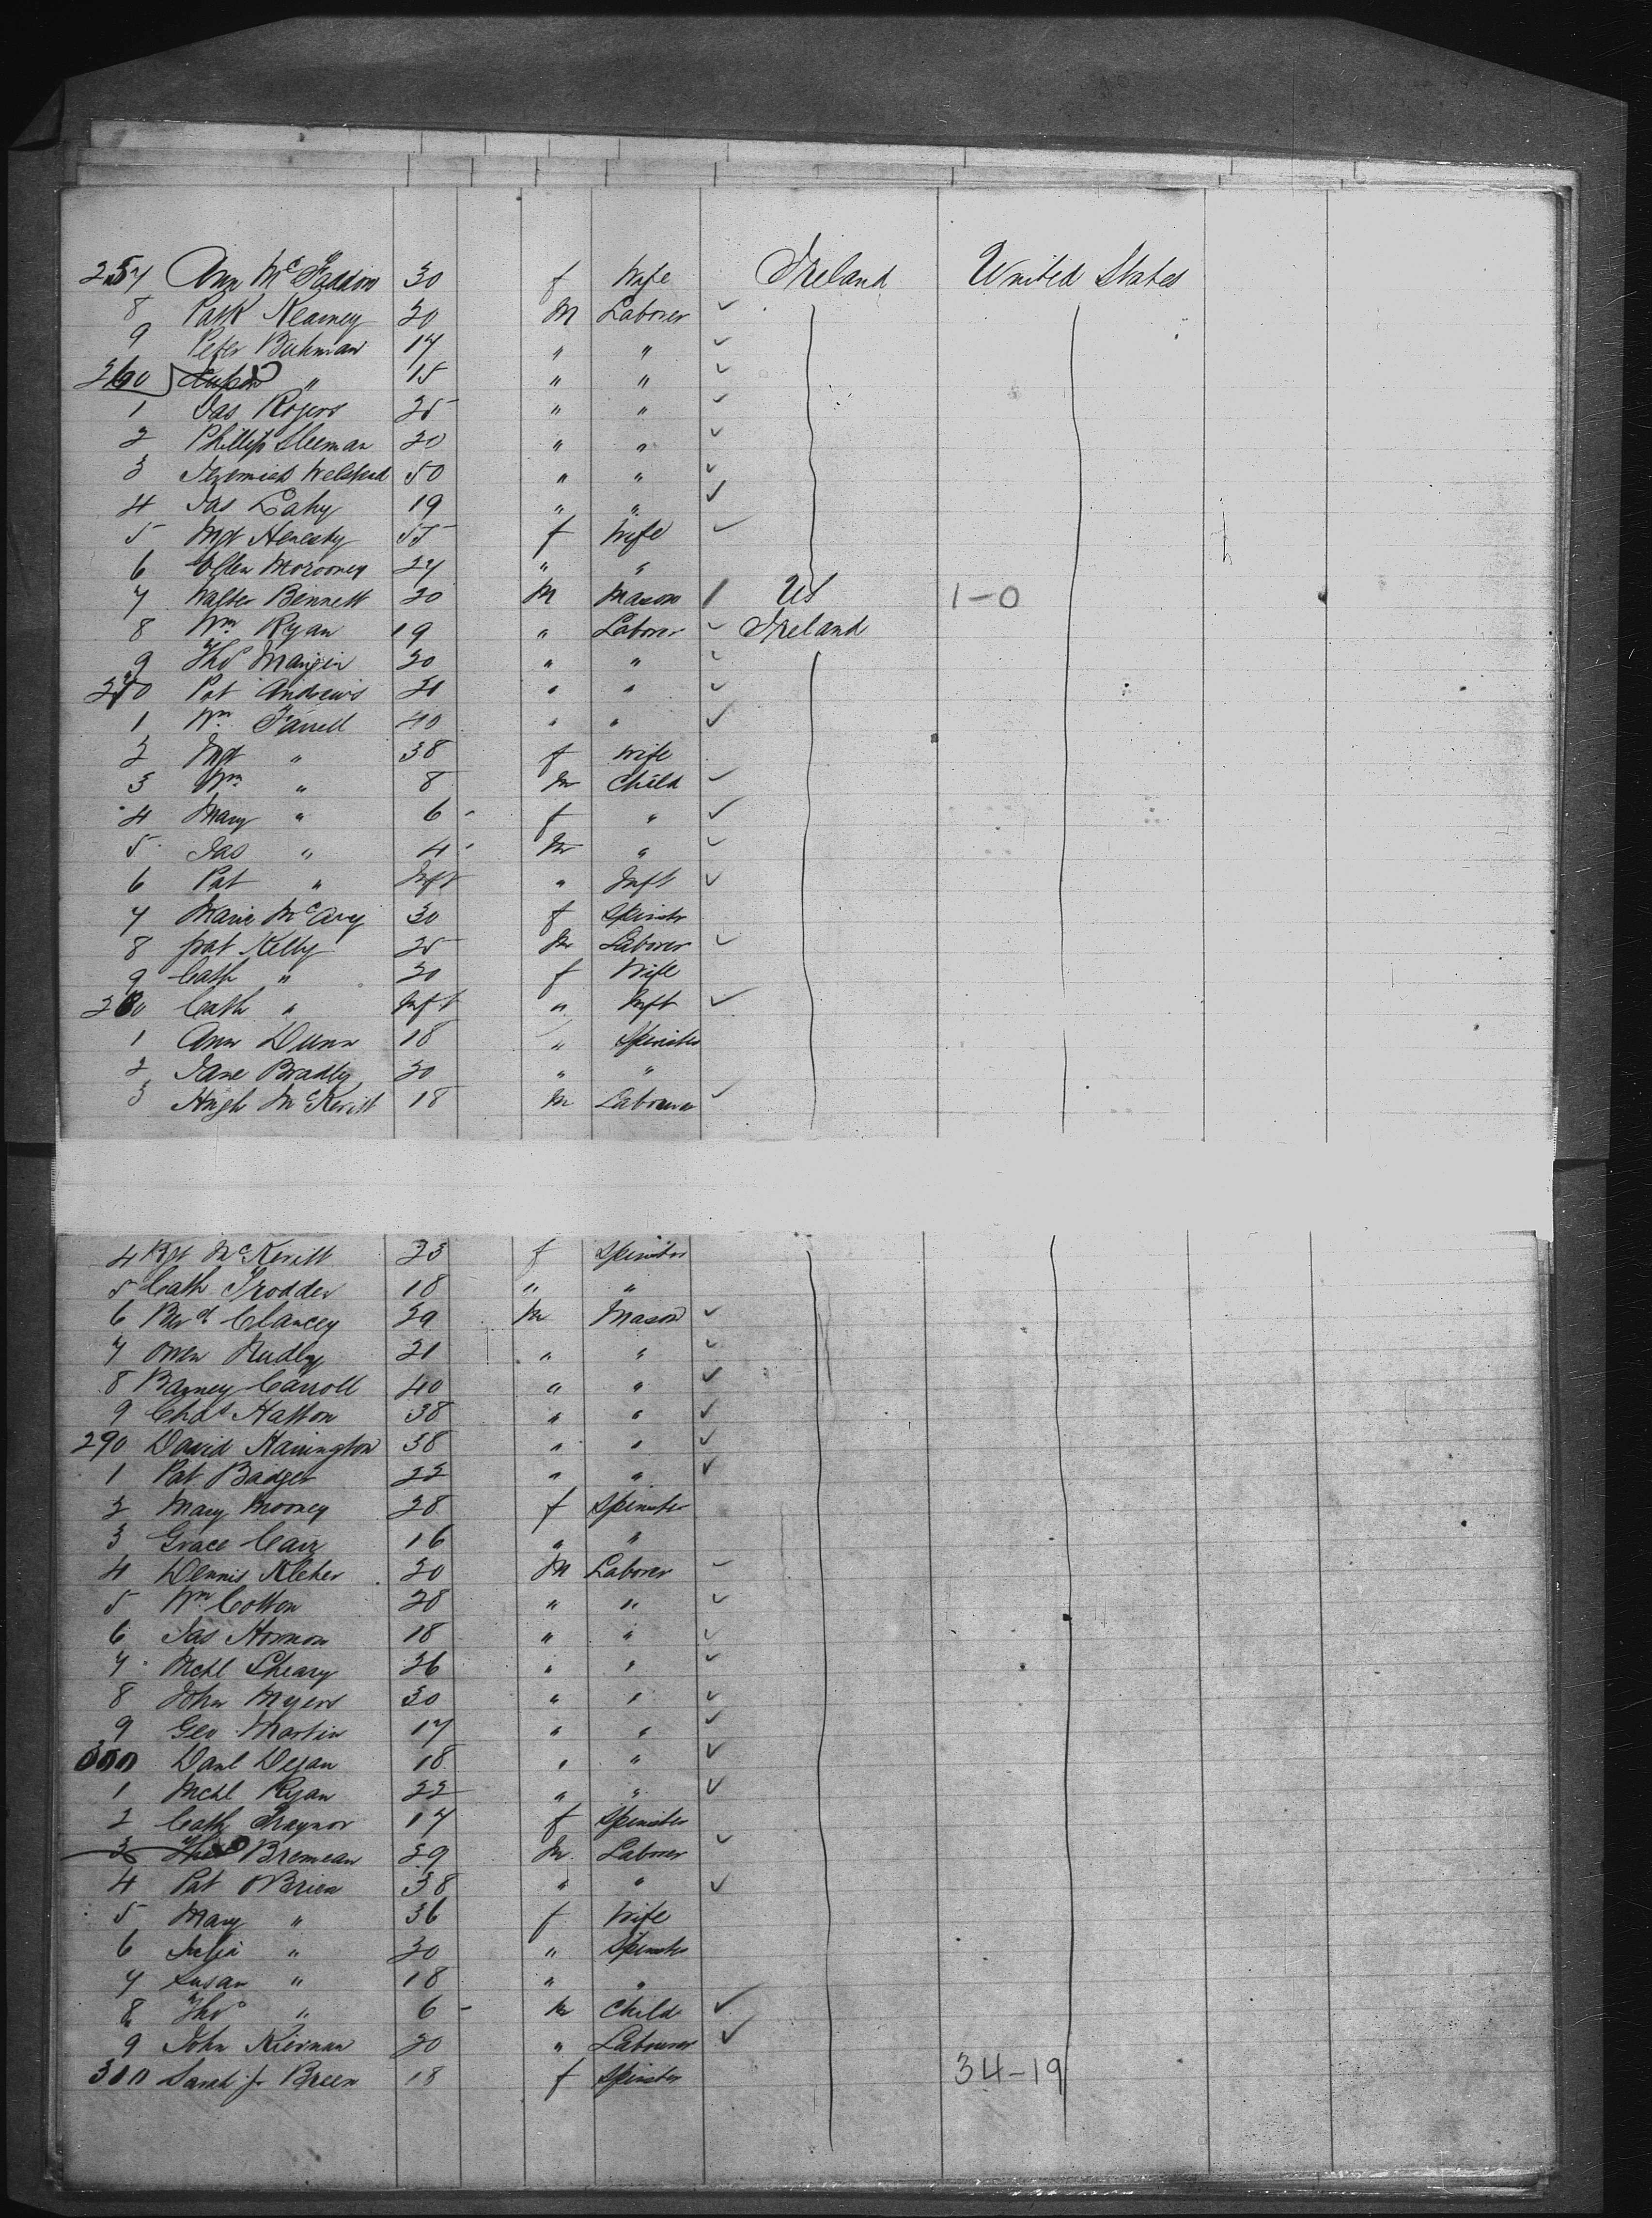 257 Ann McFaddon 30 f Wife Ireland United States
8 Patk Kearney 20 M Laborer ✓
9 Peter Buhman 17 " " ✓
260 " 15 " " ✓
1 Jas Rogers 25 " " ✓
2 Phillip Sleeman 20 " " ✓
3 Jeremiah 50 " " ✓
4 Jas Lahy 19 " " ✓
5 Mgt Henesby 55 f Wife ✓
6 Ellen Morooney 27 " "
7 Walter Bennett 30 M Mason / US 1-0
8 Wm Ryan 19 " Laborer ✓ Ireland
9 Thos Mangin 20 " " ✓
270 Pat Andrews 21 " " ✓
1 Wm Farrell 40 " " ✓
2 Mgt " 38 f Wife
3 Wm " 8 M Child ✓
4 Mary " 6 - f " ✓
5 Jas " 4 M " ✓
6 Pat " Inft " Inft ✓
7 Maria McAvy 30 f Spinstr
8 Pat Kelly 25 M Laborer ✓
9 Cath " 20 f Wife
280 Cath " Inft " Inft ✓
1 Ann Dunn 18 " Spinster
2 Jane Bradly 20 " "
3 Hugh McKevitt 18 M Labourer ✓
4 Bgt McKevitt 23 f Spinster
5 Cath Trodder 18 " "
6 Berd Clancey 29 M Mason ✓
7 Owen 21 " " ✓
8 Barney Carroll 40 " " ✓
9 Chas Hatton 38 " " ✓
290 David Harrington 38 " " ✓
1 Pat Badger 22 " " ✓
2 Mary Mooney 28 f Spinster
3 Grace Carr 16 " "
4 Dennis Kleher 20 M Laborer ✓
5 Wm Cotton 28 " " ✓
6 Jas Hormon 18 " " ✓
7 Michl Sheary 26 " " ✓
8 John Myers 30 " " ✓
9 Geo Martin 17 " " ✓
300 Danl Degan 18 " " ✓
1 Michl Ryan 22 " " ✓
2 Cath Traynor 17 f Spinster
3 Thos Bremean 29 M Laborer ✓
4 Pat OBrien 38 " " ✓
5 Mary " 36 f Wife
6 Julia " 20 " Spinster
7 Susan " 18 " "
8 Thos " 6 - M Child ✓
9 John Kiernan 20 " Labourer ✓
310 Sarah J. Breen 18 f Spinster 34-19